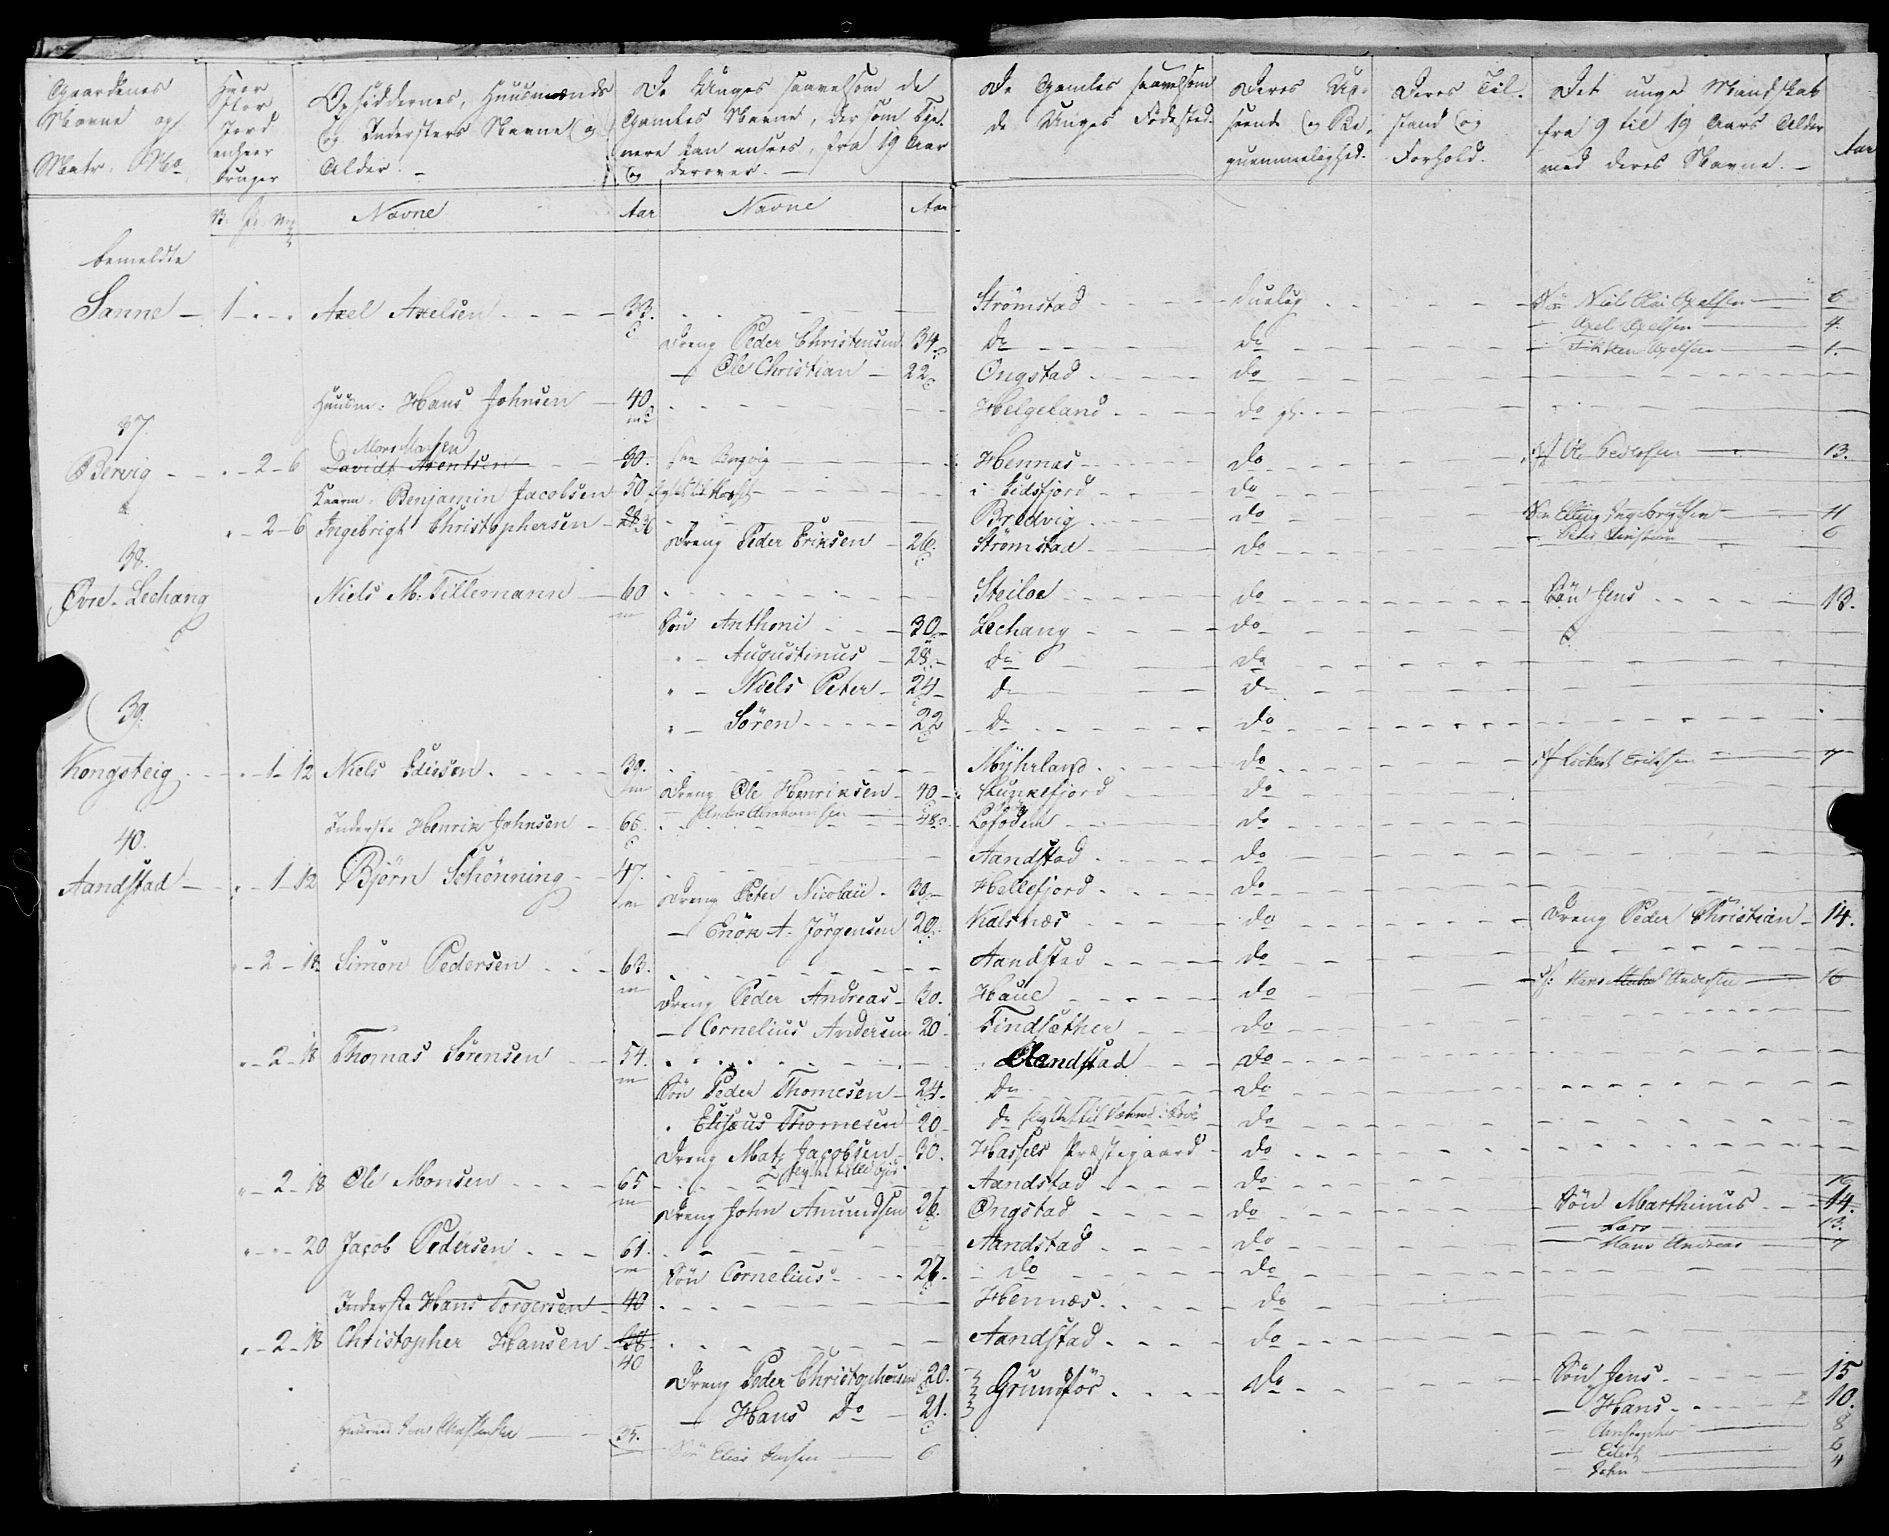 Gaardenes Navne og Matr. No
Hvor stor Jord enhver bruger
Opsiddernes, Huusmænds og Indersters Navne og Alder. –
De Unges saavelsom de Gamles Navne, der som Tjenere kan ansees, fra 19 Aar og derover. –
De Gamles saavelsom de Unges Fødested.
Deres Udseende og Bequemmelighed.
Deres Tilstand og Forhold.
Det unge Mandskab fra 9 til 19 Aars Alder med deres Navne. –
Aar
V. Pd. Mk
Navne
Aar
Navne
Aar
bemeldte
Sanne – 1 - - - Axel Axelsen 33. Strømstad duelig Søn Niels Axelsen 6
Axel Axelsen 4.
Dreng Peder Christensen 34 do do Axelsen 1.
– Ole Christian – 22 Ongstad do
Huusm: Hans Johnsen – 40. Helgeland do
37.
Mons Monsen
Bervig - 2-6 Davidt Arentsen 30. Hennes do Ole Pedersen 13.
Kaarm. Benjamin Jacobsen 50 i Eidsfjord do
- 2-6 Ingebrigt Christophersen 36 Bredvig do Søn Ingebrigtsen 11
Dreng Peder Eriksen – 26. Strømstad do 6
38.
Øvre-Lechang Niels M. Tillemann 60 Steiloe do Søn Jens 13.
Søn Anthoni 30 Lechang do
" – Augustinus 28. do do
" – Niels Peter – 24 do do
" – Søren 22 do do
39.
Kongsteig - 1-12 Niels 39. Myhrland do Eriksen 7
Dreng Ole Henriksen – 40 do
Inderste Henrik Johnsen – 66. Anders Abrahamsen 48 Lofoden do
40.
Aandstad - 1-12 Bjørn Schönning 47. Aandstad do
Dreng Peter Nicolai 30 Hellefjord do
– Enok A. Jörgensen 20 Kalsnæs do Dreng Peder Christian – 14.
- 2-18 Simon Pedersen 63. Aandstad do
Dreng Peder Andreas – 30. Haue do Hans Andersen 16
– Cornelius Andersen 20 Findsæther do
- 2-18 Thomas Sørensen 54. Aandstad do
Søn Peder Thomesen – 24. do do
" Elisæus Thomesen 20 do flyttet til do
Dreng Mat. Jacobsen 30. Hassels Præstegaard do
- 2-18 Ole Monsen 65 Aandstad do 16
Dreng John Amundsen 26. Ongstad do Søn Marthinus 14.
Lars 13.
" - " 20 Jacob Pedersen 61. Aandstad do Hans Andreas 7
Søn Cornelius 26. do do
Inderste Hans Torgersen 40 Hennes do
- 2-18 Christopher Hansen 38 Aandstad do
40
Dreng Peder Christophersen 20. Grundfør do Søn Jens 15
– Hans do 21. – Hans 10.
Huusmd Jens 35. – Christopher 8
Søn Elias Jensen 6 – Eilert 6
– John 4